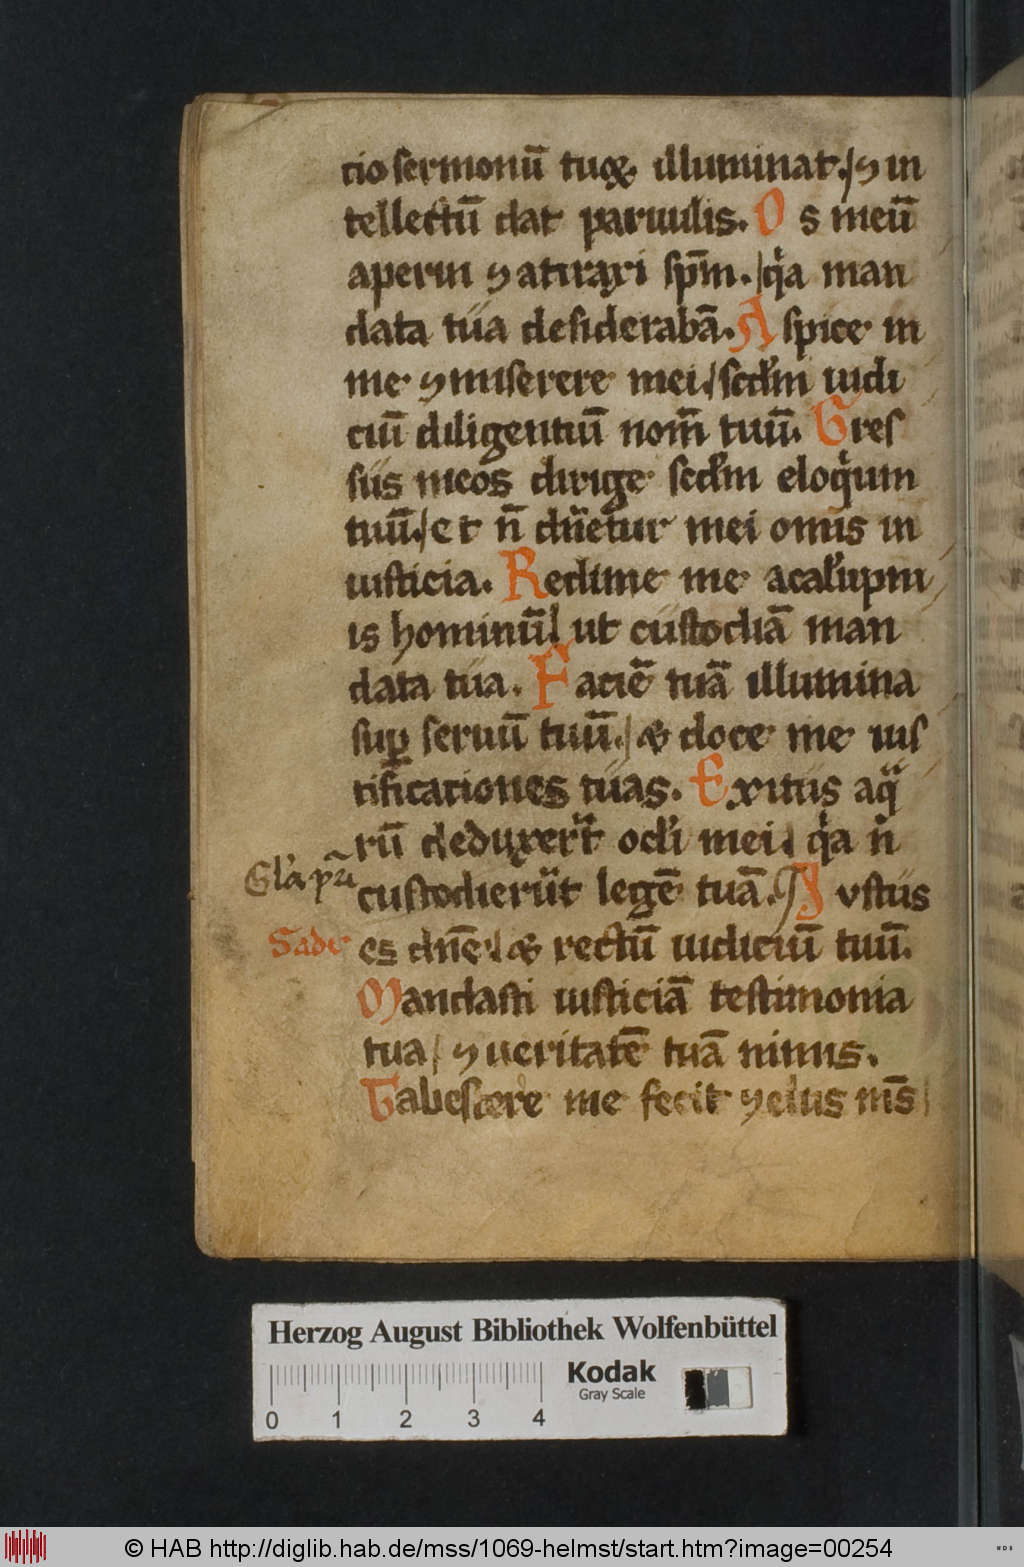 tio sermonū tuoꝝ illuminat / ⁊ in
tellectū dat paruulis. O s meū
aperui ⁊ attraxi sp̄m. / qͥa man
data tua desiderabā. A spice in
me ⁊ miserere mei / scd̓m iudi
ciū diligentiū nom̄ tuū. Gres
sus meos dirige scd̓m eloqͥum
tuū. / et n̄ dn̄etur mei omīs in
iusticia. Redime me a cal̓upni
is hominū / ut custodiā man
data tua. Faciē tuā illumina
suꝑ seruū tuū. / & doce me ius
tificationes tuas. Exitus aqͣ
rū deduxer̄t ocl̓i mei / qͥa n̄
Gl̓a pr̄i
custodierūt legē tuā. ¶ Iustus
Sade
es dn̄e / & rectū iudiciū tuū.
Mandasti iusticiā testimonia
tua / ⁊ ueritatē tuā nimis.
Tabescere me fecit ⁊elus m̄s /
Herzog August Bibliothek Wolfenbüttel
Kodak
Gray Scale
0 1 2 3 4
© HAB http://diglib.hab.de/mss/1069-helmst/start.htm?image=00254